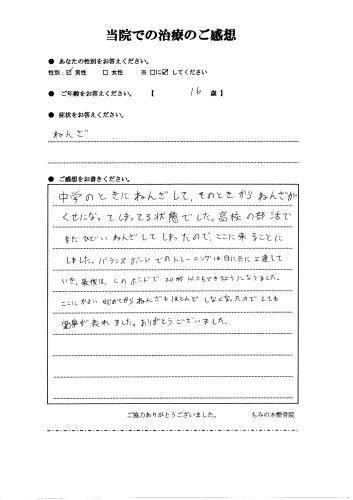 当院での治療のご感想
● あなたの性別をお答えください。
性別：☑ 男性　□ 女性　※ □に☑ してください
● ご年齢をお答えください。【 16 歳 】
● 症状をお答えください。
ねんざ
● ご感想をお書きください。
中学のときにねんざして、そのときからねんざが
くせになってしまってる状態でした。高校の部活で
またひどいねんざしてしまったので、ここに来ることに
しました。バランスボードでのトレーニングは日に日に上達して
いき、最後は、このボードで20秒以上もできるようになりました。
ここにかよい始めてからねんざもほとんどしなくなったのでとても
効果が表れました。ありがとうございました。
ご協力ありがとうございました。　もみの木整骨院